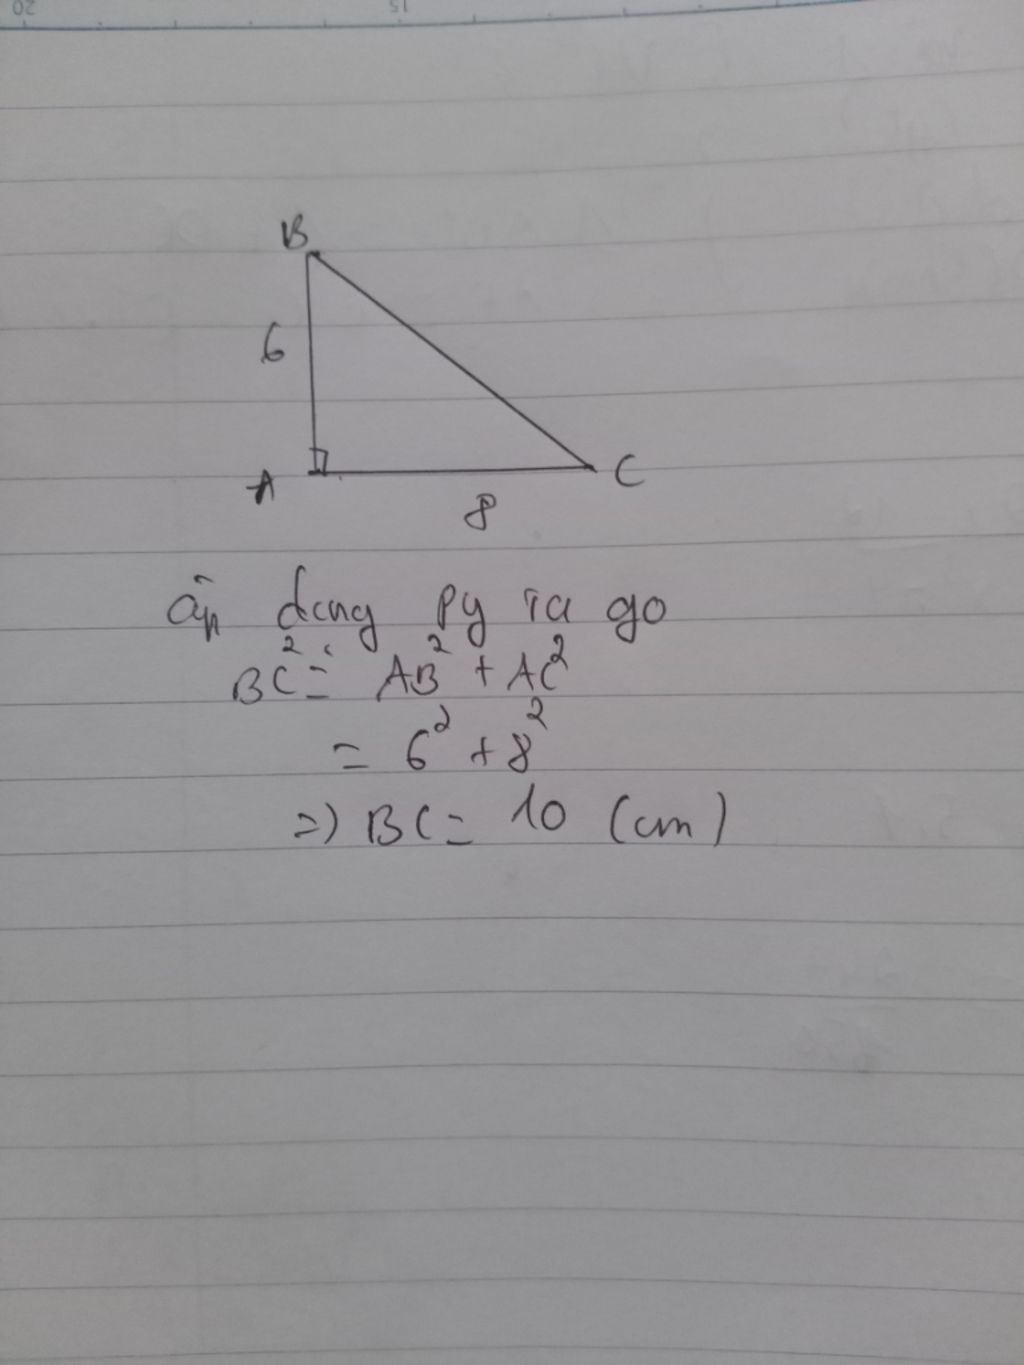 20 15
B
6
A C
8
áp dụng py ta go
BC² = AB² + AC²
= 6² + 8²
=> BC = 10 (cm)